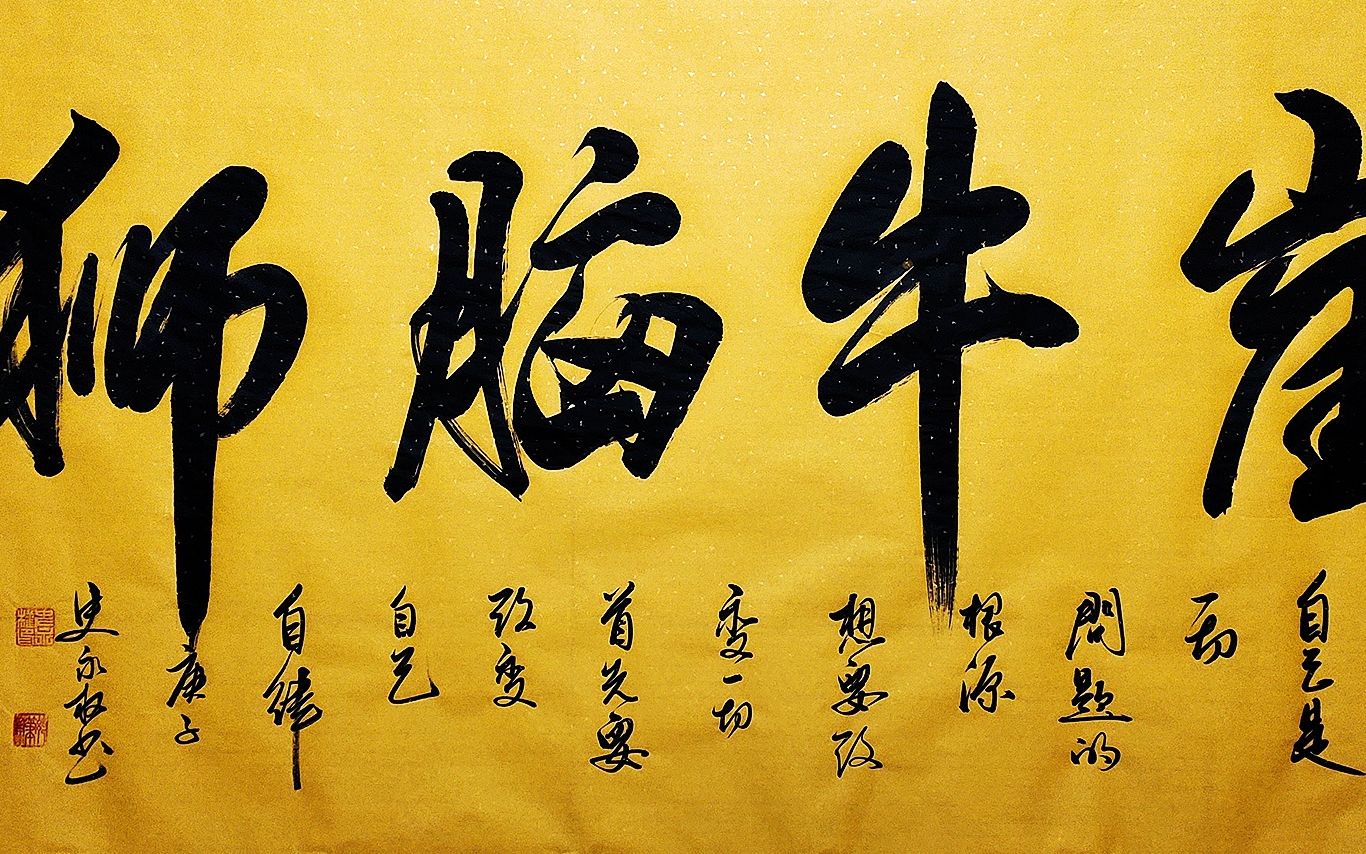 牛脑狮
自己是
一切
問題的
根源
想要改
变一切
首先要
改变
自己
自律
庚子
史永书